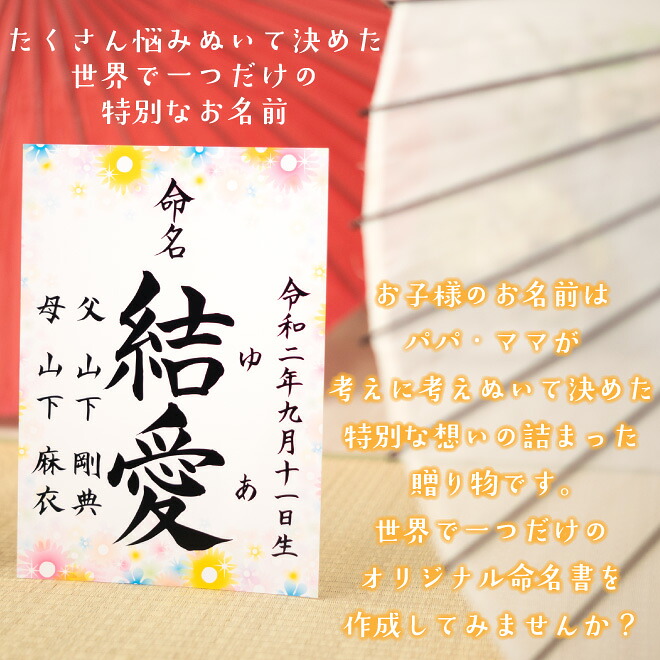 たくさん悩みぬいて決めた
世界で一つだけの
特別なお名前
命名
令和二年九月十一日生
結愛
ゆあ
父 山下 剛典
母 山下 麻衣
お子様のお名前は
パパ・ママが
考えに考えぬいて決めた
特別な想いの詰まった
贈り物です。
世界で一つだけの
オリジナル命名書を
作成してみませんか？